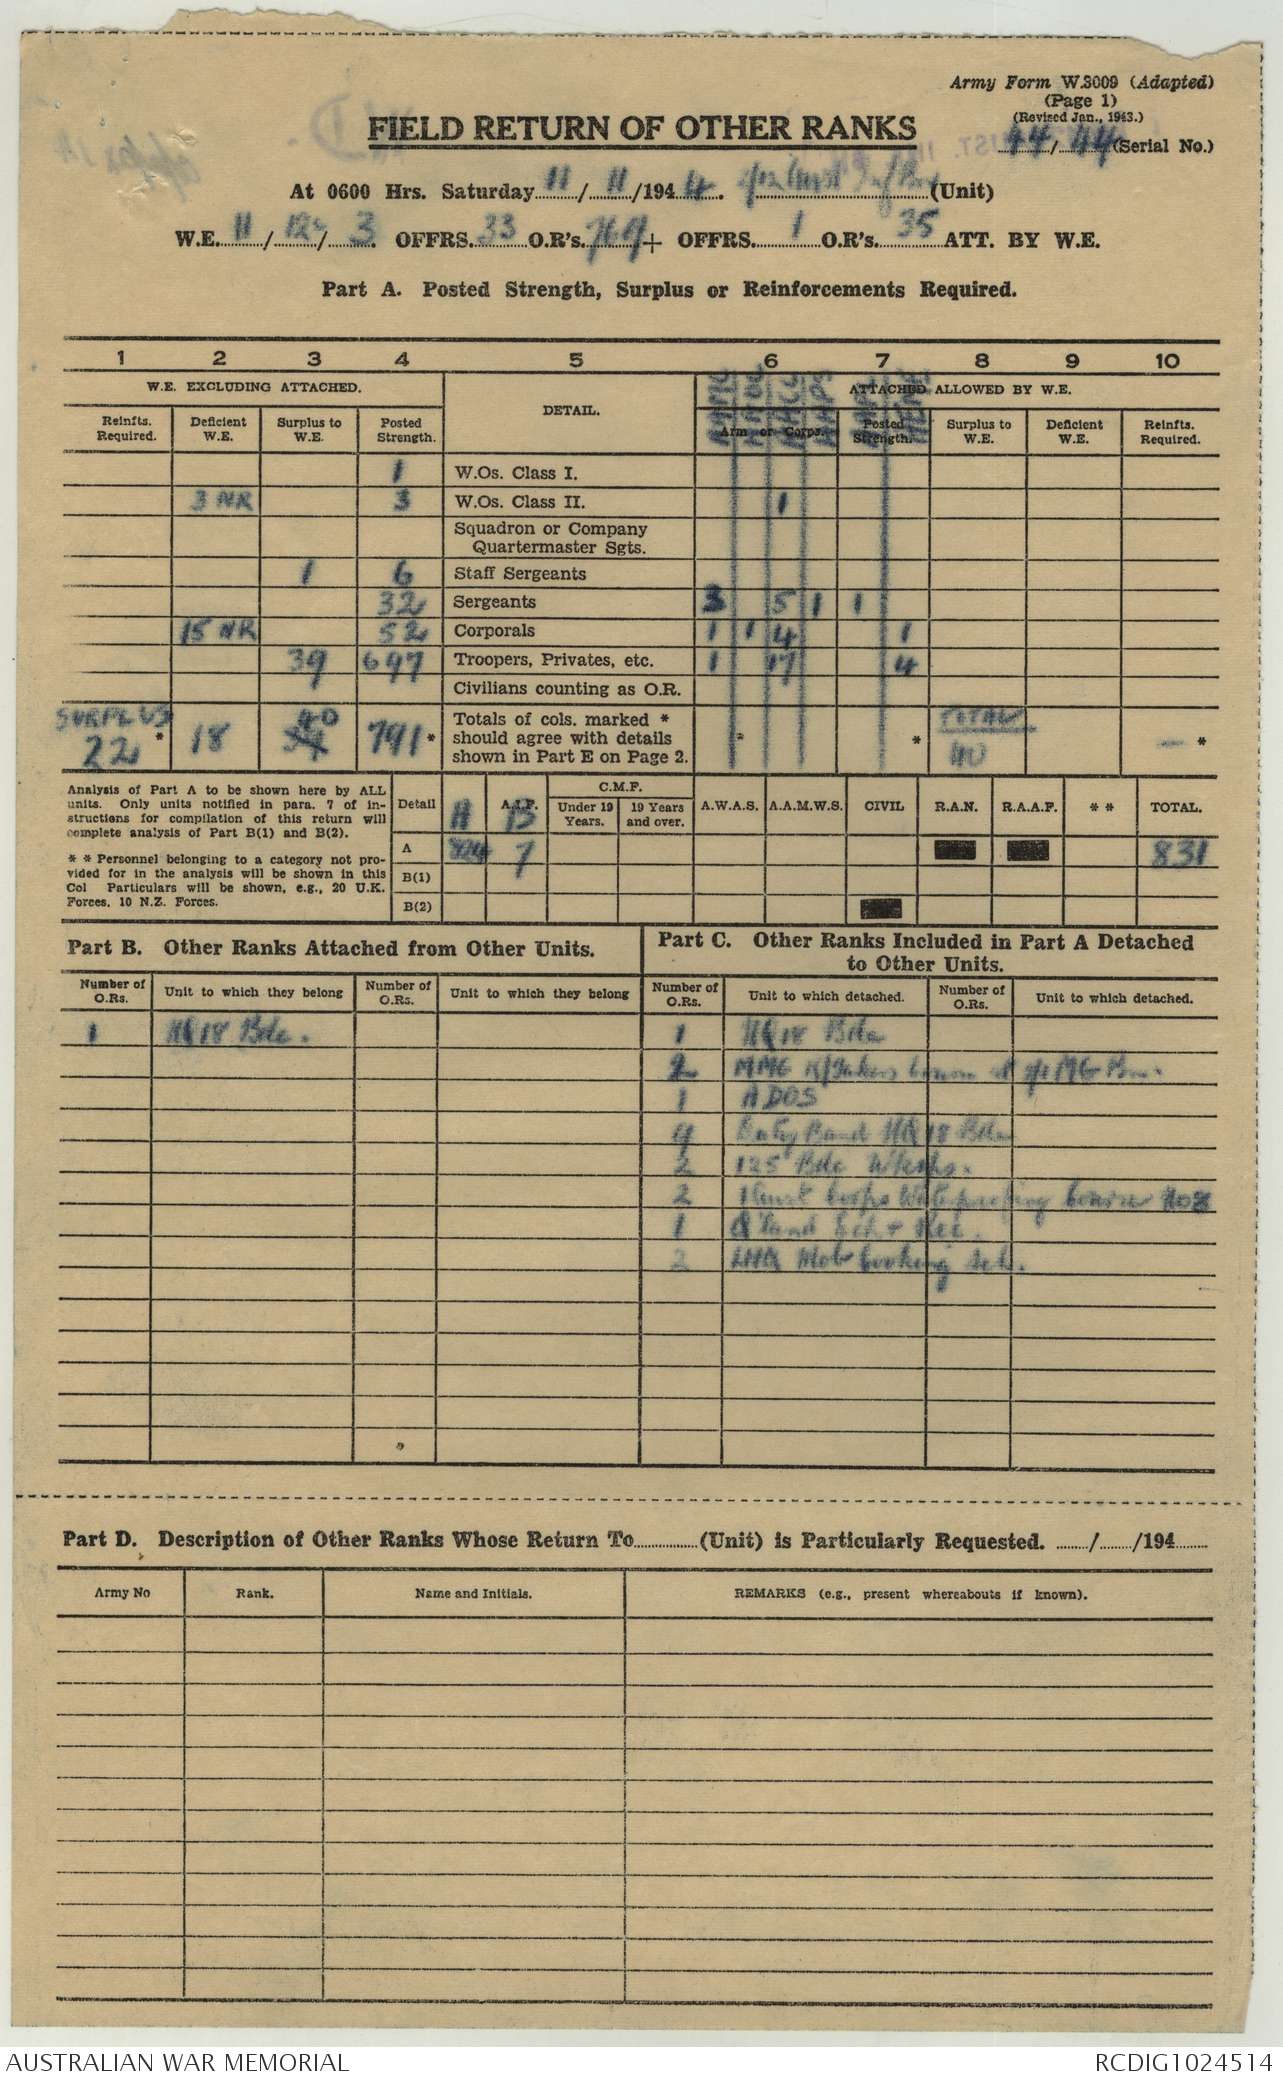 Army Form W.3009 (Adapted)
(Page 1)
(Revised Jan., 1943.)
44/44 (Serial No.)
FIELD RETURN OF OTHER RANKS
At 0600 Hrs. Saturday 11/11/1944. 2/12 Aust Inf Bn (Unit)
W.E. 11/12/3. OFFRS. 33 O.R's. 769 + OFFRS. 1 O.R's. 35 ATT. BY W.E.
Part A. Posted Strength, Surplus or Reinforcements Required.
1 2 3 4 5 6 7 8 9 10
W.E. EXCLUDING ATTACHED. DETAIL. ATTACHED ALLOWED BY W.E.
Reinfts. Required. Deficient W.E. Surplus to W.E. Posted Strength. Arm or Corps. Posted Strength. Surplus to W.E. Deficient W.E. Reinfts. Required.
1 W.Os. Class I.
3 NR 3 W.Os. Class II. 1
Squadron or Company
Quartermaster Sgts.
1 6 Staff Sergeants
32 Sergeants 3 5 1 1
15 NR 52 Corporals 1 1 4 1
39 697 Troopers, Privates, etc. 1 17 4
Civilians counting as O.R.
SURPLUS 22 * 18 40 791 * Totals of cols. marked * should agree with details shown in Part E on Page 2. * * TOTAL 40 — *
Analysis of Part A to be shown here by ALL
units. Only units notified in para. 7 of in-
structions for compilation of this return will
complete analysis of Part B(1) and B(2).
* * Personnel belonging to a category not pro-
vided for in the analysis will be shown in this
Col Particulars will be shown, e.g., 20 U.K.
Forces, 10 N.Z. Forces.
Detail A A.I.F. B C.M.F. Under 19 Years. 19 Years and over. A.W.A.S. A.A.M.W.S. CIVIL R.A.N. R.A.A.F. * * TOTAL.
A 824 7 831
B(1)
B(2)
Part B. Other Ranks Attached from Other Units.
Part C. Other Ranks Included in Part A Detached
to Other Units.
Number of O.Rs. Unit to which they belong Number of O.Rs. Unit to which they belong Number of O.Rs. Unit to which detached. Number of O.Rs. Unit to which detached.
1 HQ 18 Bde.
1 HQ 18 Bde
2 MMG at 2/1 MG Bn.
1 ADOS
4 Band HQ 18 Bde
2 125 Bde Wksps.
2 1 Aust Corps Waterproofing
1 Q'land Ech + Rec.
2 LHQ Mob Cooking
Part D. Description of Other Ranks Whose Return To (Unit) is Particularly Requested. / /194
Army No Rank. Name and Initials. REMARKS (e.g., present whereabouts if known).
AUSTRALIAN WAR MEMORIAL RCDIG1024514